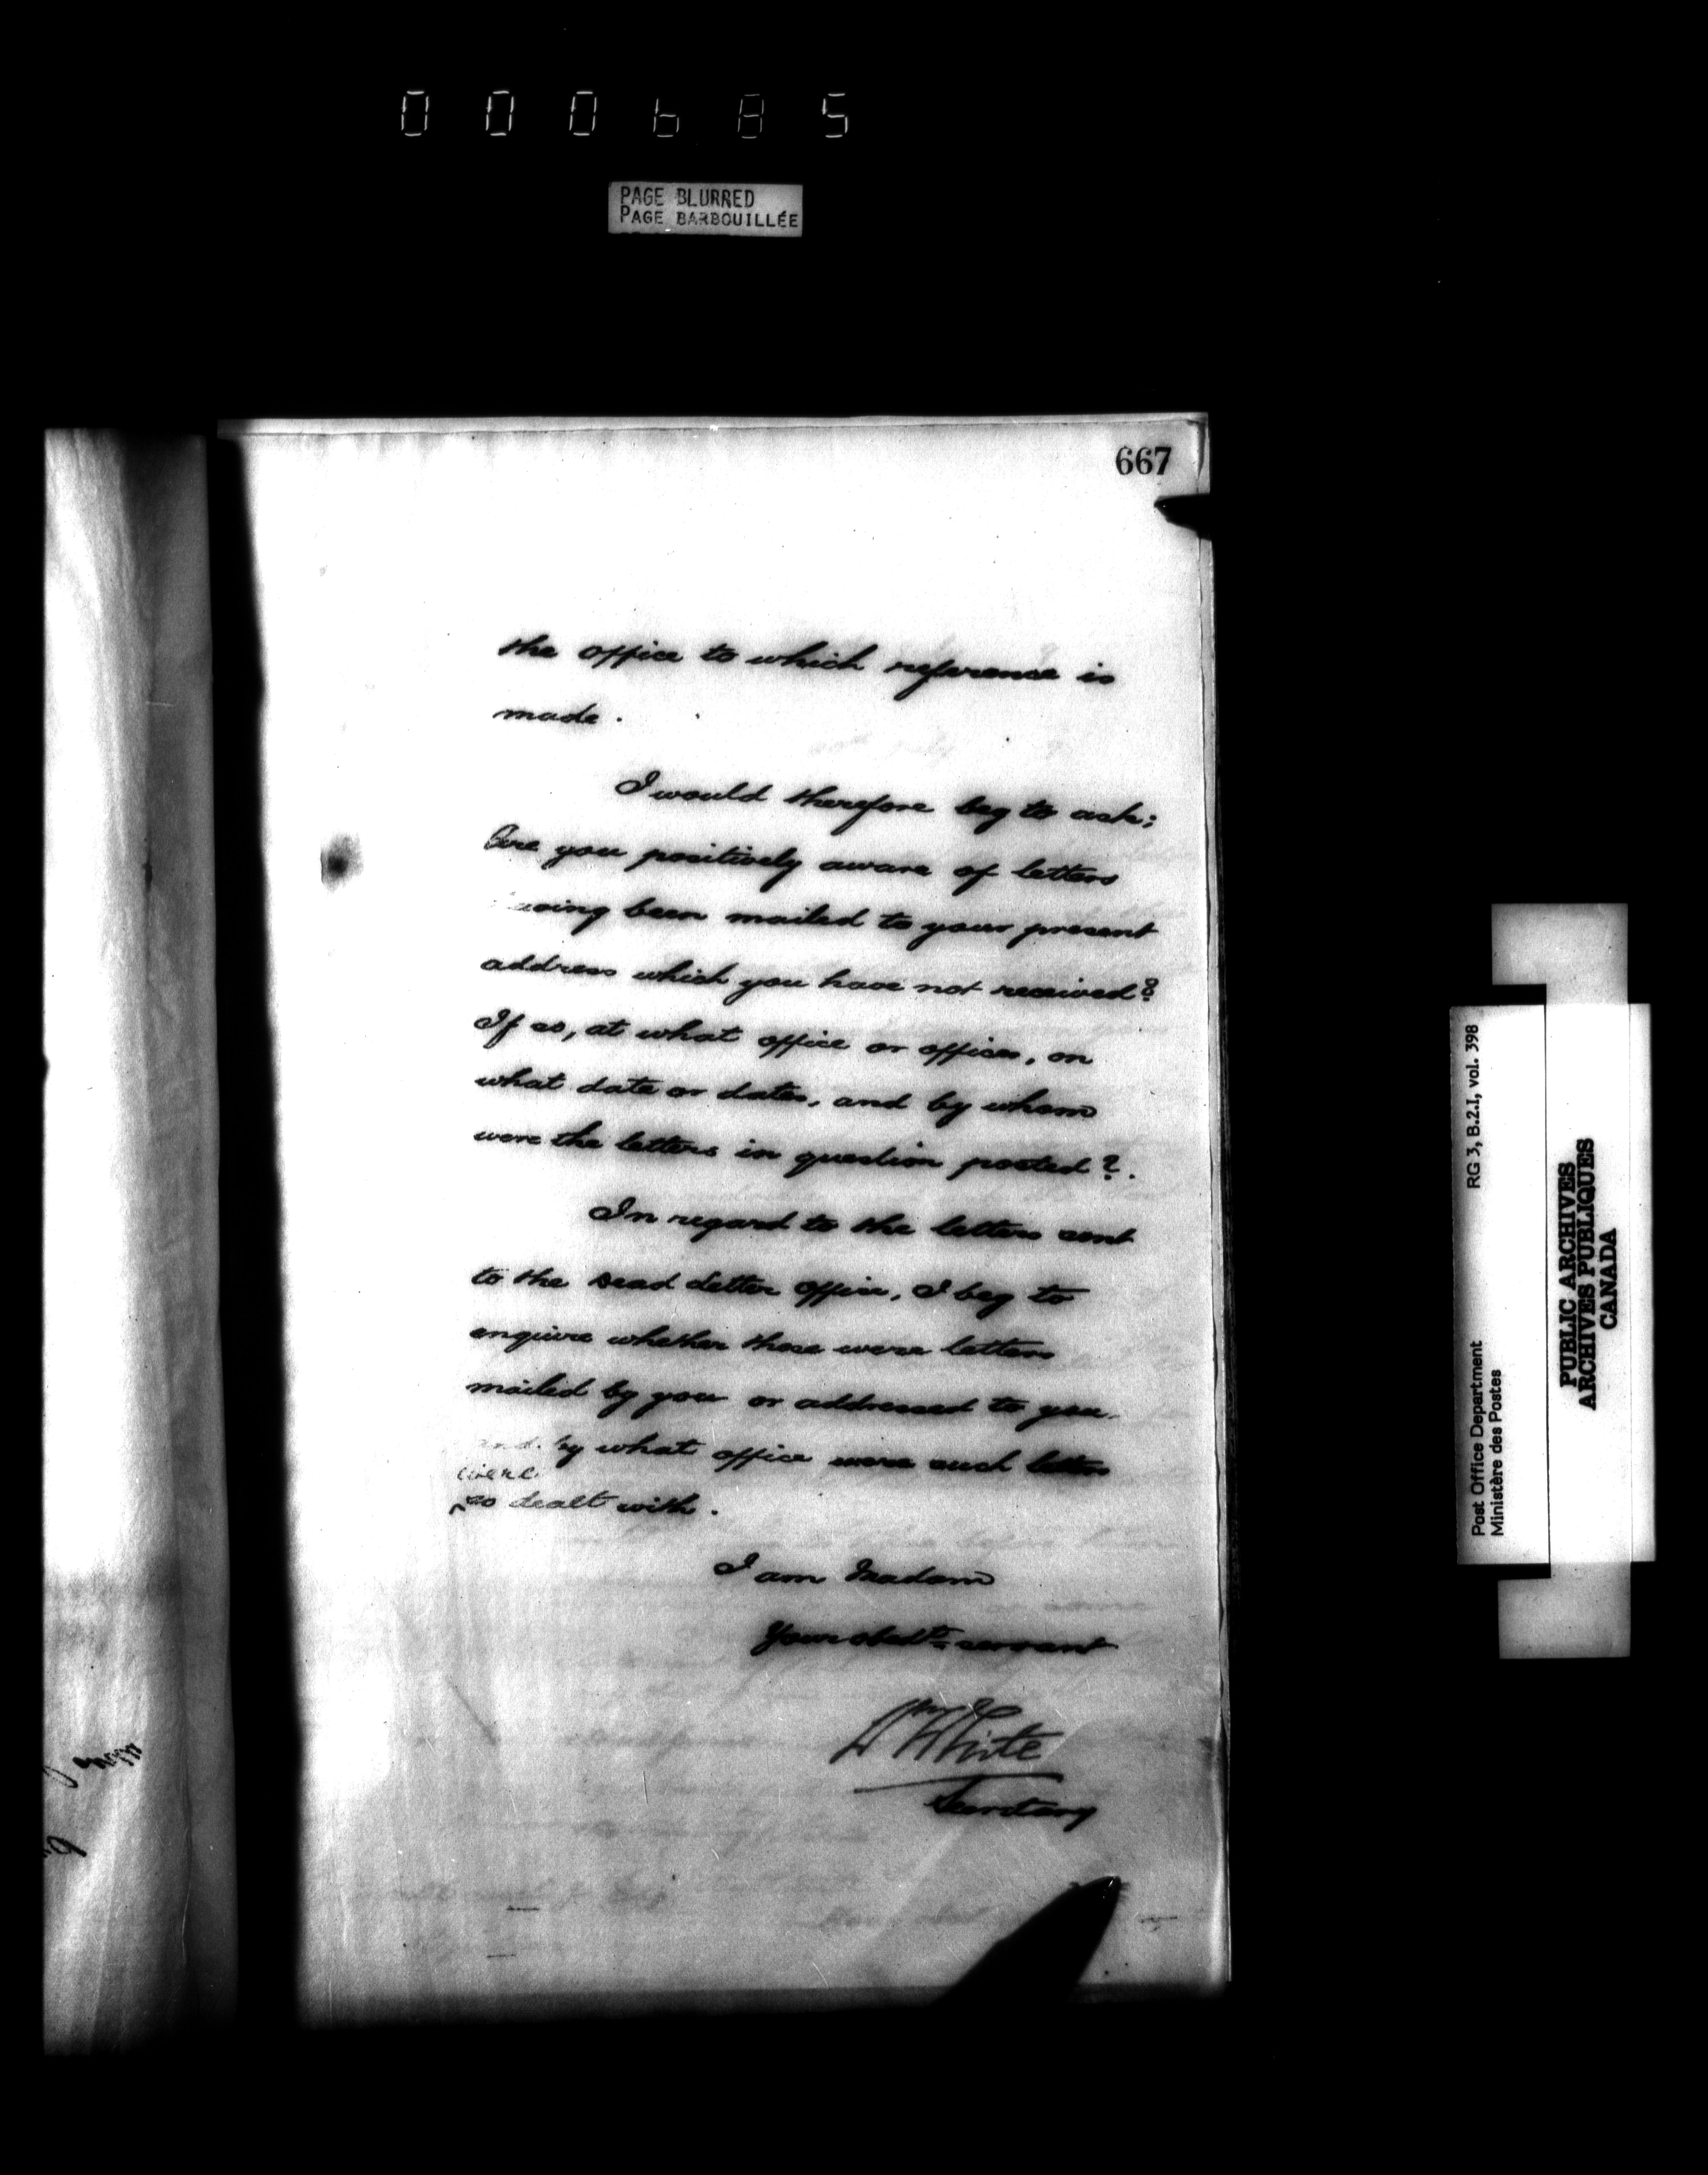 000685
PAGE BLURRED
PAGE BARBOUILLÉE
667
the office to which reference is
made.
I would therefore beg to ask;
Are you positively aware of letters
having been mailed to your present
address which you have not received?
If so, at what office or offices, on
what date or dates, and by whom
were the letters in question posted?.
In regard to the letters sent
to the Dead Letter Office, I beg to
enquire whether these were letters
mailed by you or addressed to you,
and by what office were such letters
were
so dealt with.
I am Madam
Your obedt. servant
Wm White
Secretary
RG 3, B.2.I, vol. 398
Post Office Department
Ministère des Postes
PUBLIC ARCHIVES
ARCHIVES PUBLIQUES
CANADA